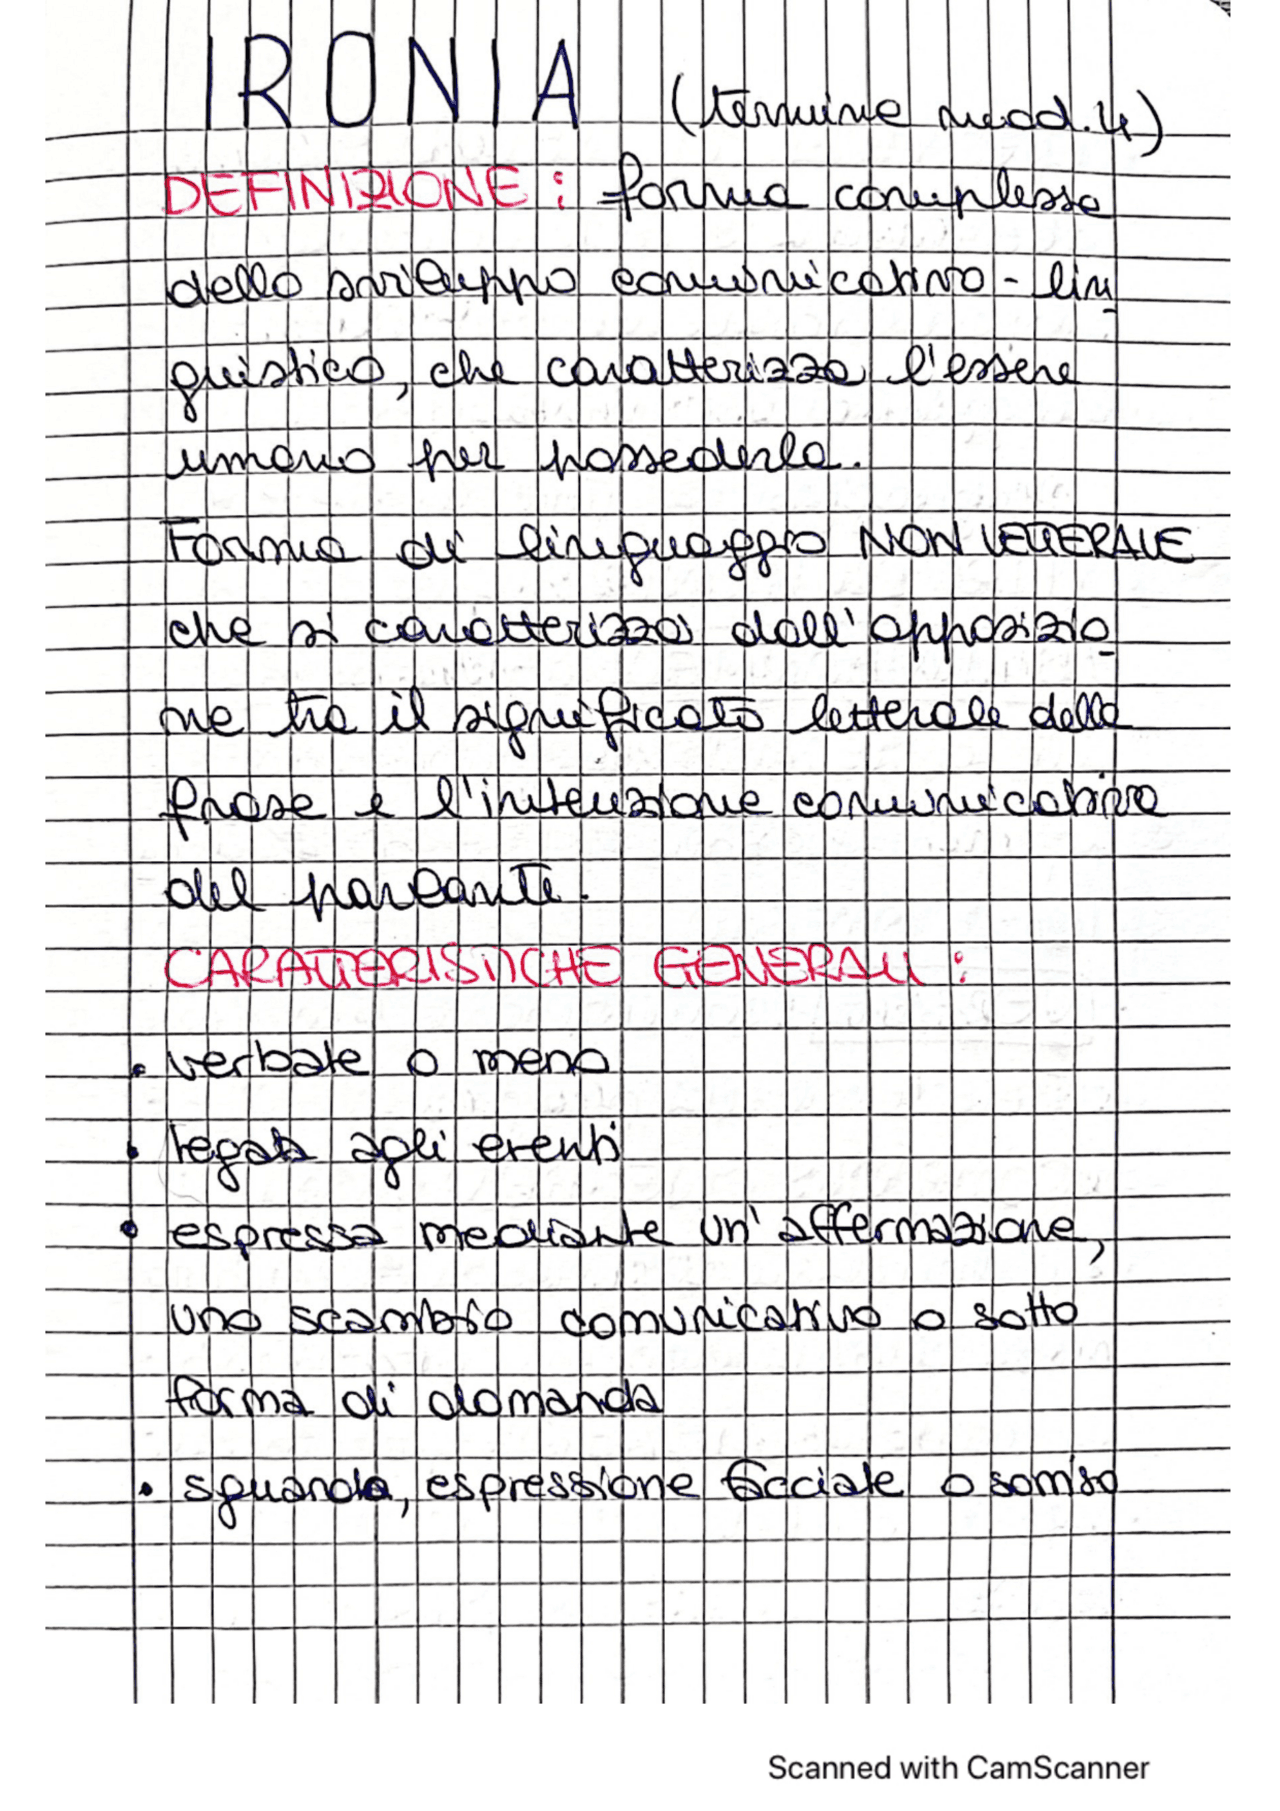 IRONIA (termine mod.4)
DEFINIZIONE: forma complessa
dello sviluppo comunicativo-lin
guistico, che caratterizza l'essere
umano per possederla.
Forma di linguaggio NON LETTERALE
che si caratterizza dall'opposizio
ne tra il significato letterale della
frase e l'intenzione comunicativa
del parlante.
CARATTERISTICHE GENERALI:
• verbale o meno
• legata agli eventi
• espressa mediante un'affermazione,
uno scambio comunicativo o sotto
forma di domanda
• sguardo, espressione facciale o sorriso
Scanned with CamScanner